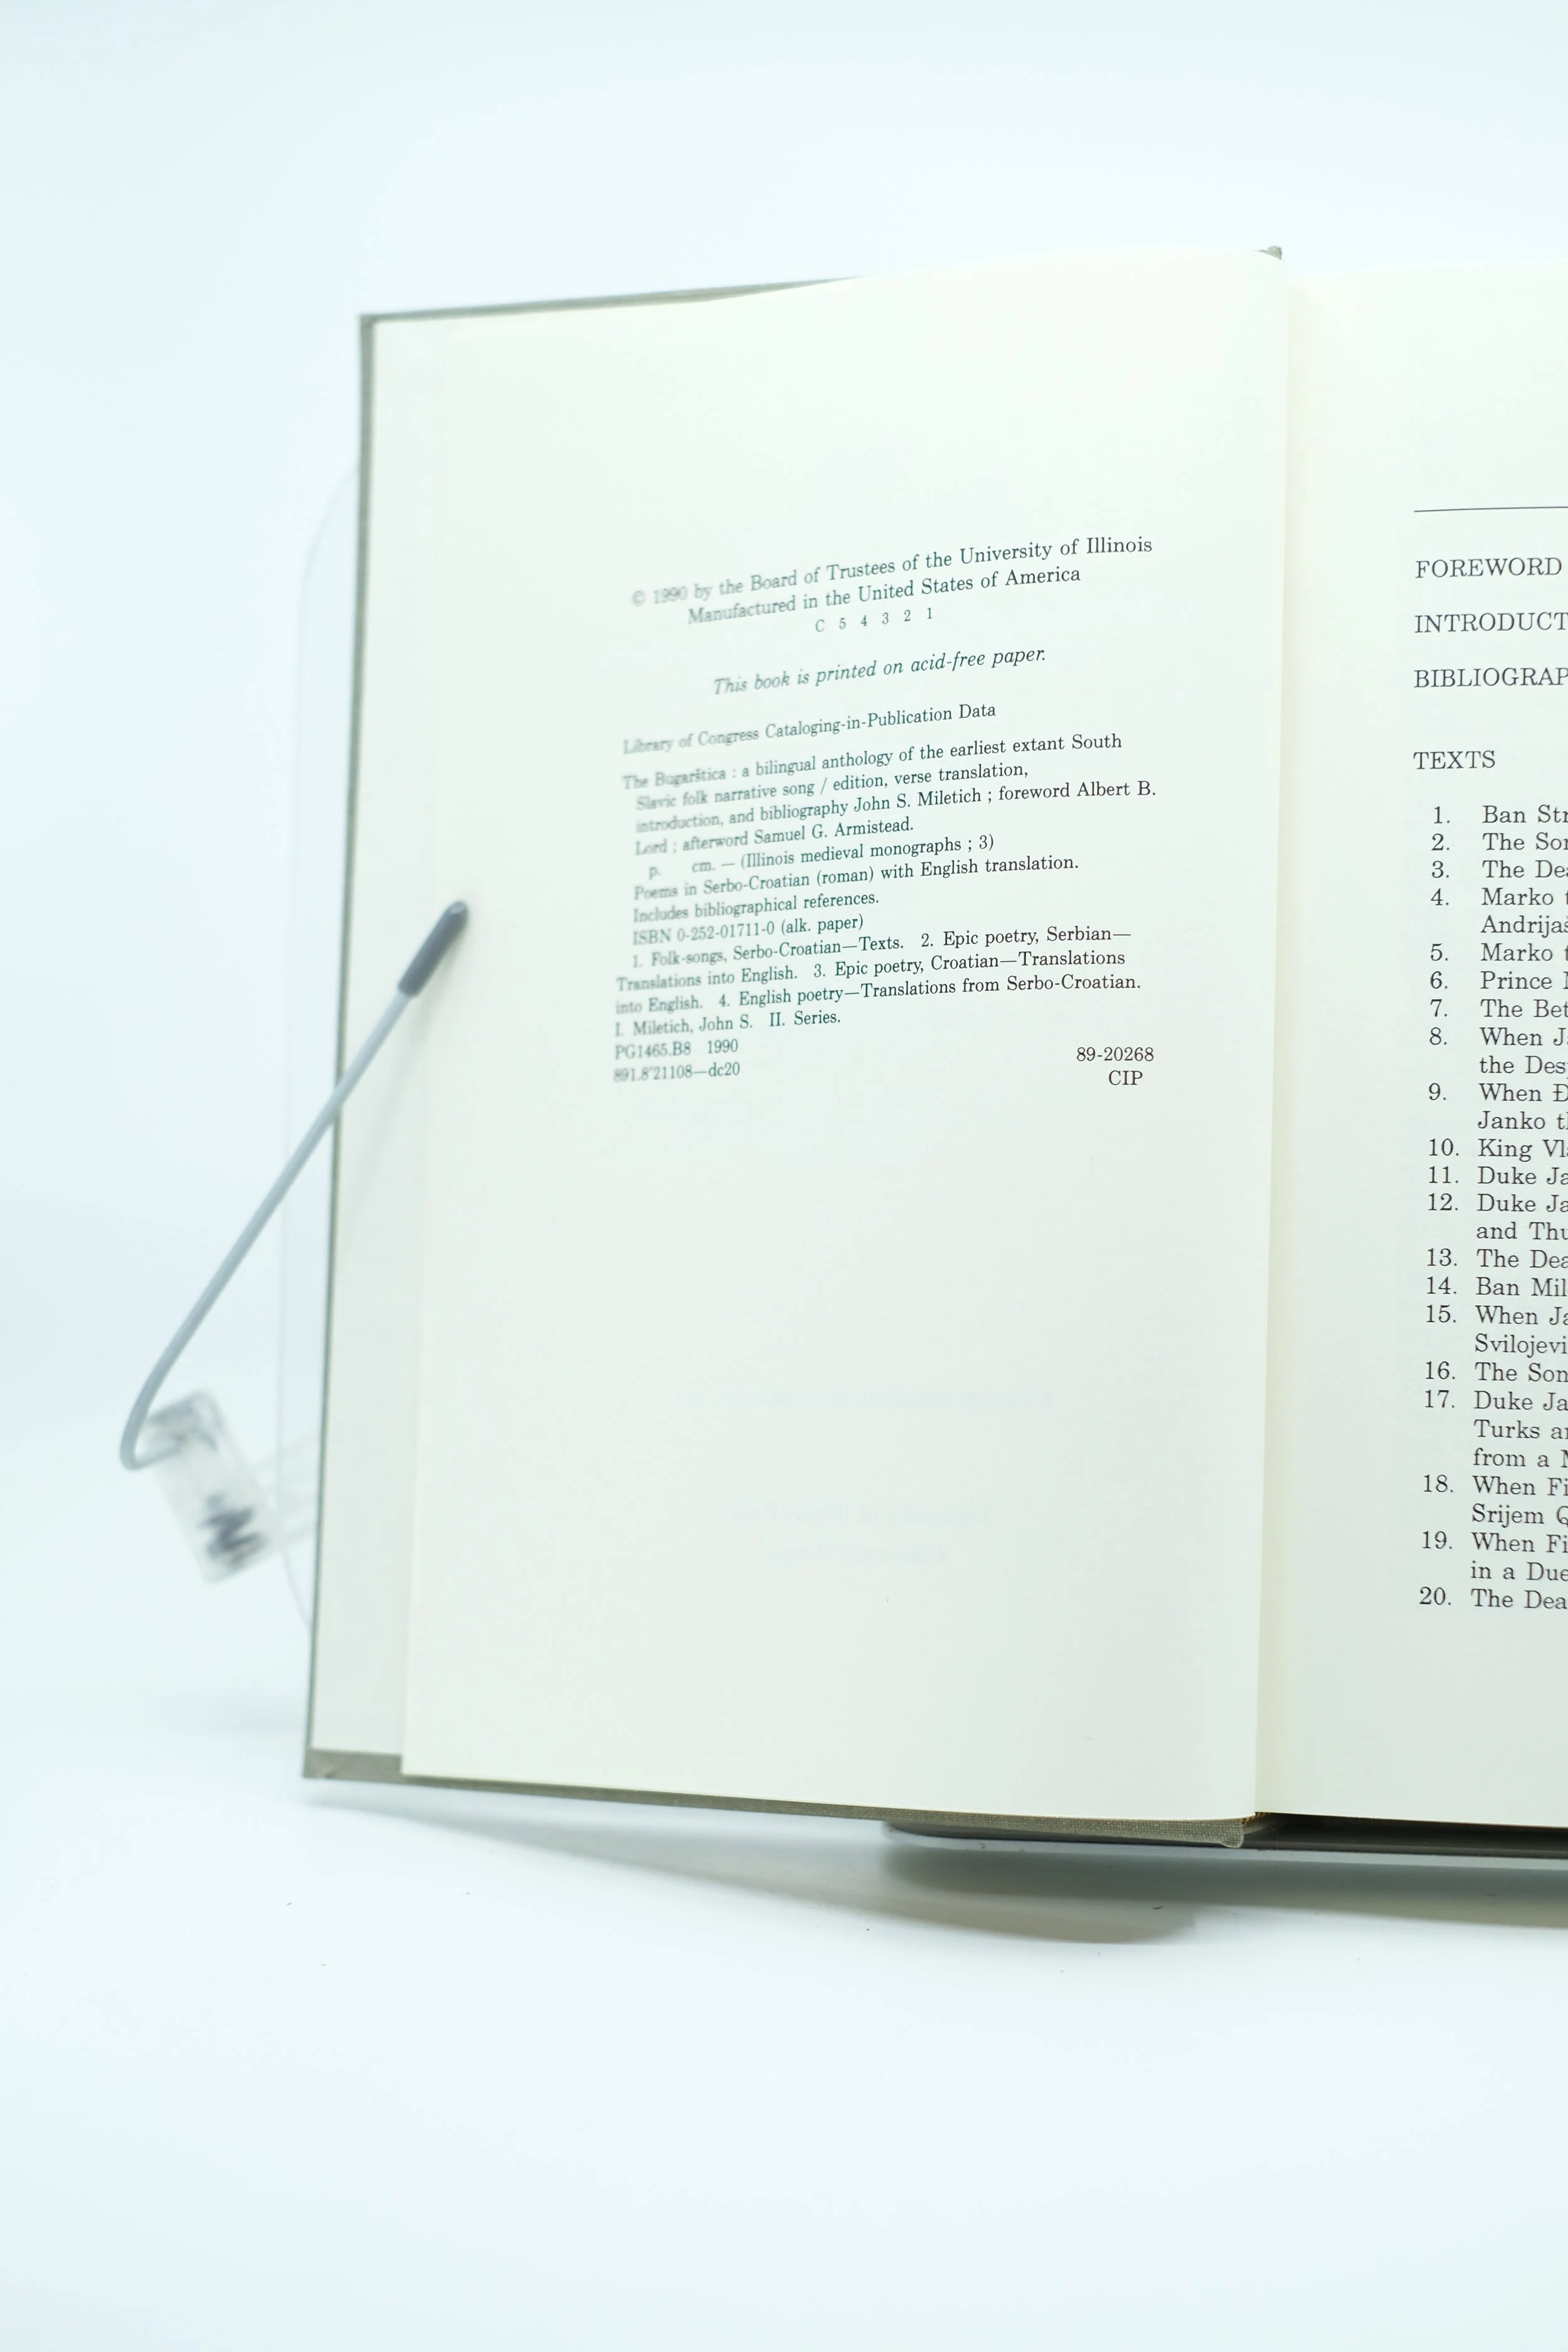 © 1990 by the Board of Trustees of the University of Illinois
Manufactured in the United States of America
C 5 4 3 2 1
This book is printed on acid-free paper.
Library of Congress Cataloging-in-Publication Data
The Bugarštica : a bilingual anthology of the earliest extant South
Slavic folk narrative song / edition, verse translation,
introduction, and bibliography John S. Miletich ; foreword Albert B.
Lord ; afterword Samuel G. Armistead.
p. cm. — (Illinois medieval monographs ; 3)
Poems in Serbo-Croatian (roman) with English translation.
Includes bibliographical references.
ISBN 0-252-01711-0 (alk. paper)
1. Folk-songs, Serbo-Croatian—Texts. 2. Epic poetry, Serbian—
Translations into English. 3. Epic poetry, Croatian—Translations
into English. 4. English poetry—Translations from Serbo-Croatian.
I. Miletich, John S. II. Series.
PG1465.B8 1990
891.8'21108—dc20
89-20268
CIP
FOREWORD
INTRODUCT
BIBLIOGRAP
TEXTS
1. Ban Str
2. The Son
3. The Dea
4. Marko t
Andrijaš
5. Marko t
6. Prince
7. The Bet
8. When Ja
the Des
9. When Đ
Janko t
10. King Vl
11. Duke Ja
12. Duke Ja
and Thu
13. The Dea
14. Ban Mil
15. When Ja
Svilojevi
16. The Son
17. Duke Ja
Turks a
from a
18. When Fi
Srijem
19. When Fi
in a Due
20. The Dea